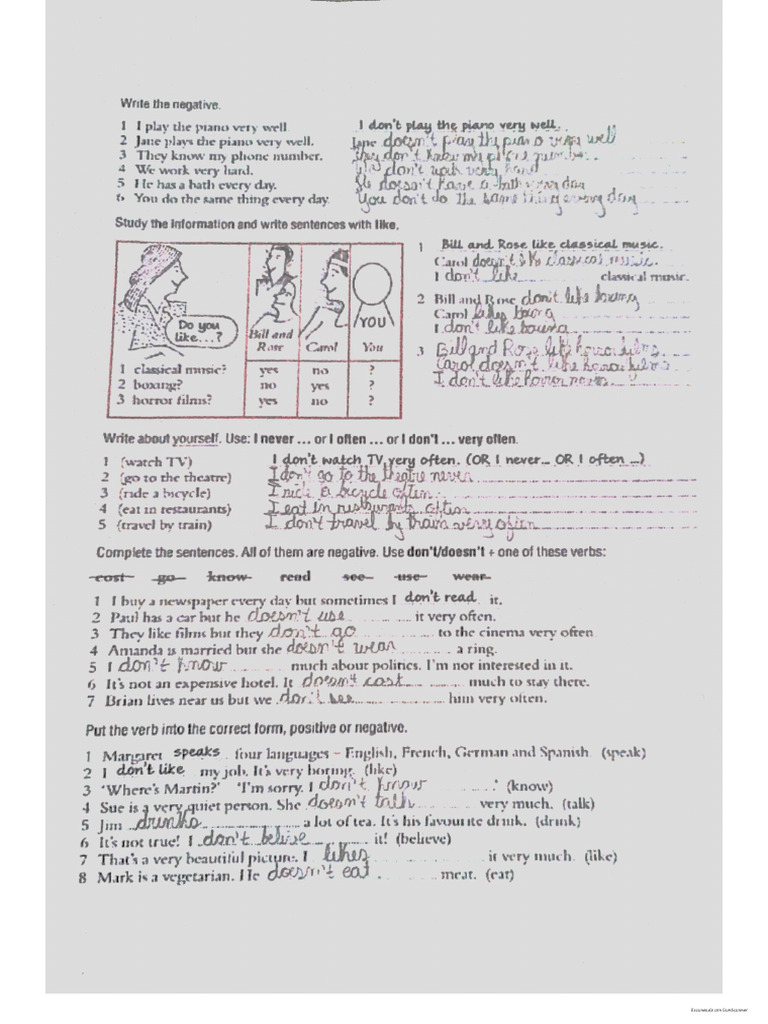 Write the negative.
1 I play the piano very well. I don't play the piano very well.
2 Jane plays the piano very well. Jane doesn't play the piano very well
3 They know my phone number. They don't know my phone number
4 We work very hard. don't work very hard
5 He has a bath every day. He doesn't have a bath every day
6 You do the same thing every day. You don't do the same thing every day
Study the information and write sentences with like.
Do you like...?
Bill and Rose Carol You
YOU
1 classical music? yes no ?
2 boxing? no yes ?
3 horror films? yes no ?
1 Bill and Rose like classical music.
Carol doesn't like classical music.
I don't like classical music.
2 Bill and Rose don't like boxing
Carol likes boxing
I don't like boxing
3 Bill and Rose like horror films
Carol doesn't like horror films
I don't like horror
Write about yourself. Use: I never ... or I often ... or I don't ... very often.
1 (watch TV) I don't watch TV very often. (OR I never... OR I often ...)
2 (go to the theatre) I don't go to the theatre never
3 (ride a bicycle) I ride a bicycle often
4 (eat in restaurants) I eat in restaurants often
5 (travel by train) I don't travel by train very often
Complete the sentences. All of them are negative. Use don't/doesn't + one of these verbs:
cost go know read see use wear
1 I buy a newspaper every day but sometimes I don't read it.
2 Paul has a car but he doesn't use it very often.
3 They like films but they don't go to the cinema very often
4 Amanda is married but she doesn't wear a ring.
5 I don't know much about politics. I'm not interested in it.
6 It's not an expensive hotel. It doesn't cost much to stay there.
7 Brian lives near us but we don't see him very often.
Put the verb into the correct form, positive or negative.
1 Margaret speaks four languages – English, French, German and Spanish. (speak)
2 I don't like my job. It's very boring. (like)
3 'Where's Martin?' 'I'm sorry. I don't know .' (know)
4 Sue is a very quiet person. She doesn't talk very much. (talk)
5 Jim drinks a lot of tea. It's his favourite drink. (drink)
6 It's not true! I don't belive it! (believe)
7 That's a very beautiful picture. I likes it very much. (like)
8 Mark is a vegetarian. He doesn't eat meat. (eat)